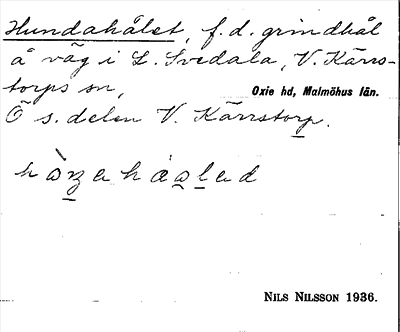 Hundahålet, f. d. grindhål
å väg i L. Svedala, V. Kärrs-
torps sn,
Oxie hd, Malmöhus län.
Ö s. delen V. Kärrstorp.
NILS NILSSON 1936.